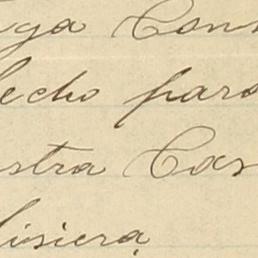 ya Con
echo para
stra Cas
isiera